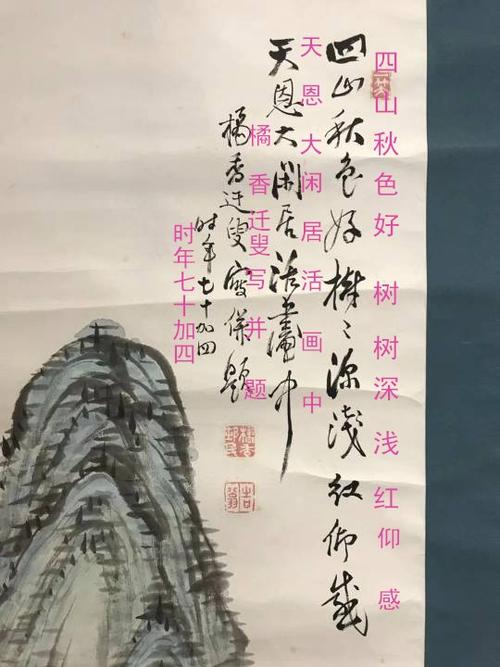 四山秋色好 树树深浅红仰感
四山秋色好樹〻深淺紅仰感
天恩大闲居活画中
天恩大閑居活畫中
橘香迁叟写并题
橘香迂叟寫併題
时年七十加四
時年七十加四